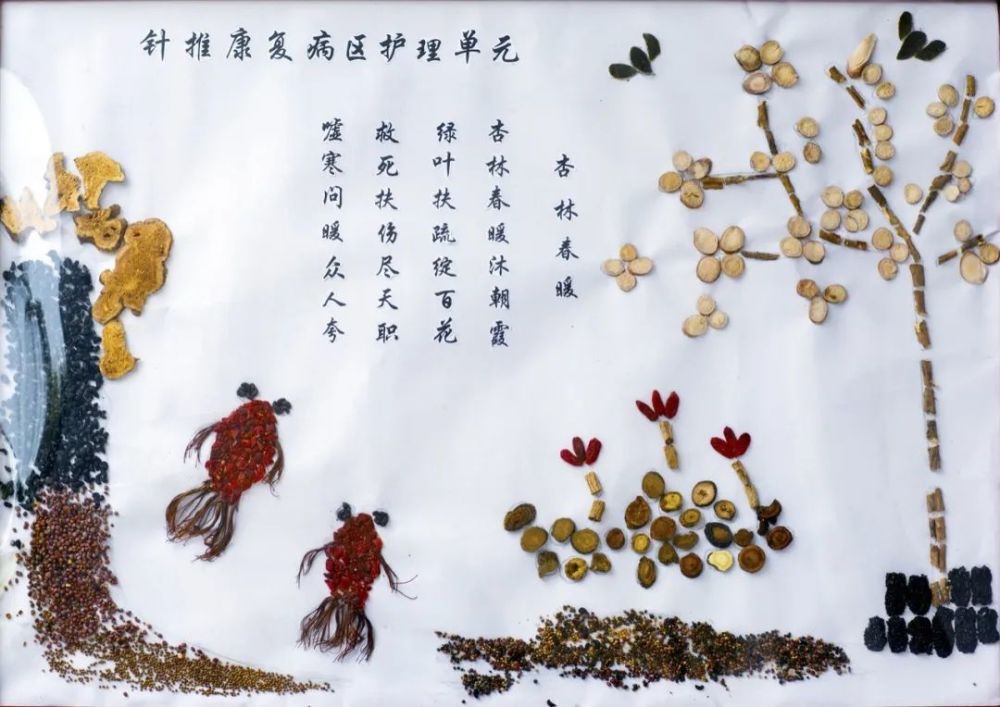 针推康复病区护理单元
杏林春暖
杏林春暖沐朝霞
绿叶扶疏绽百花
救死扶伤尽天职
嘘寒问暖众人夸